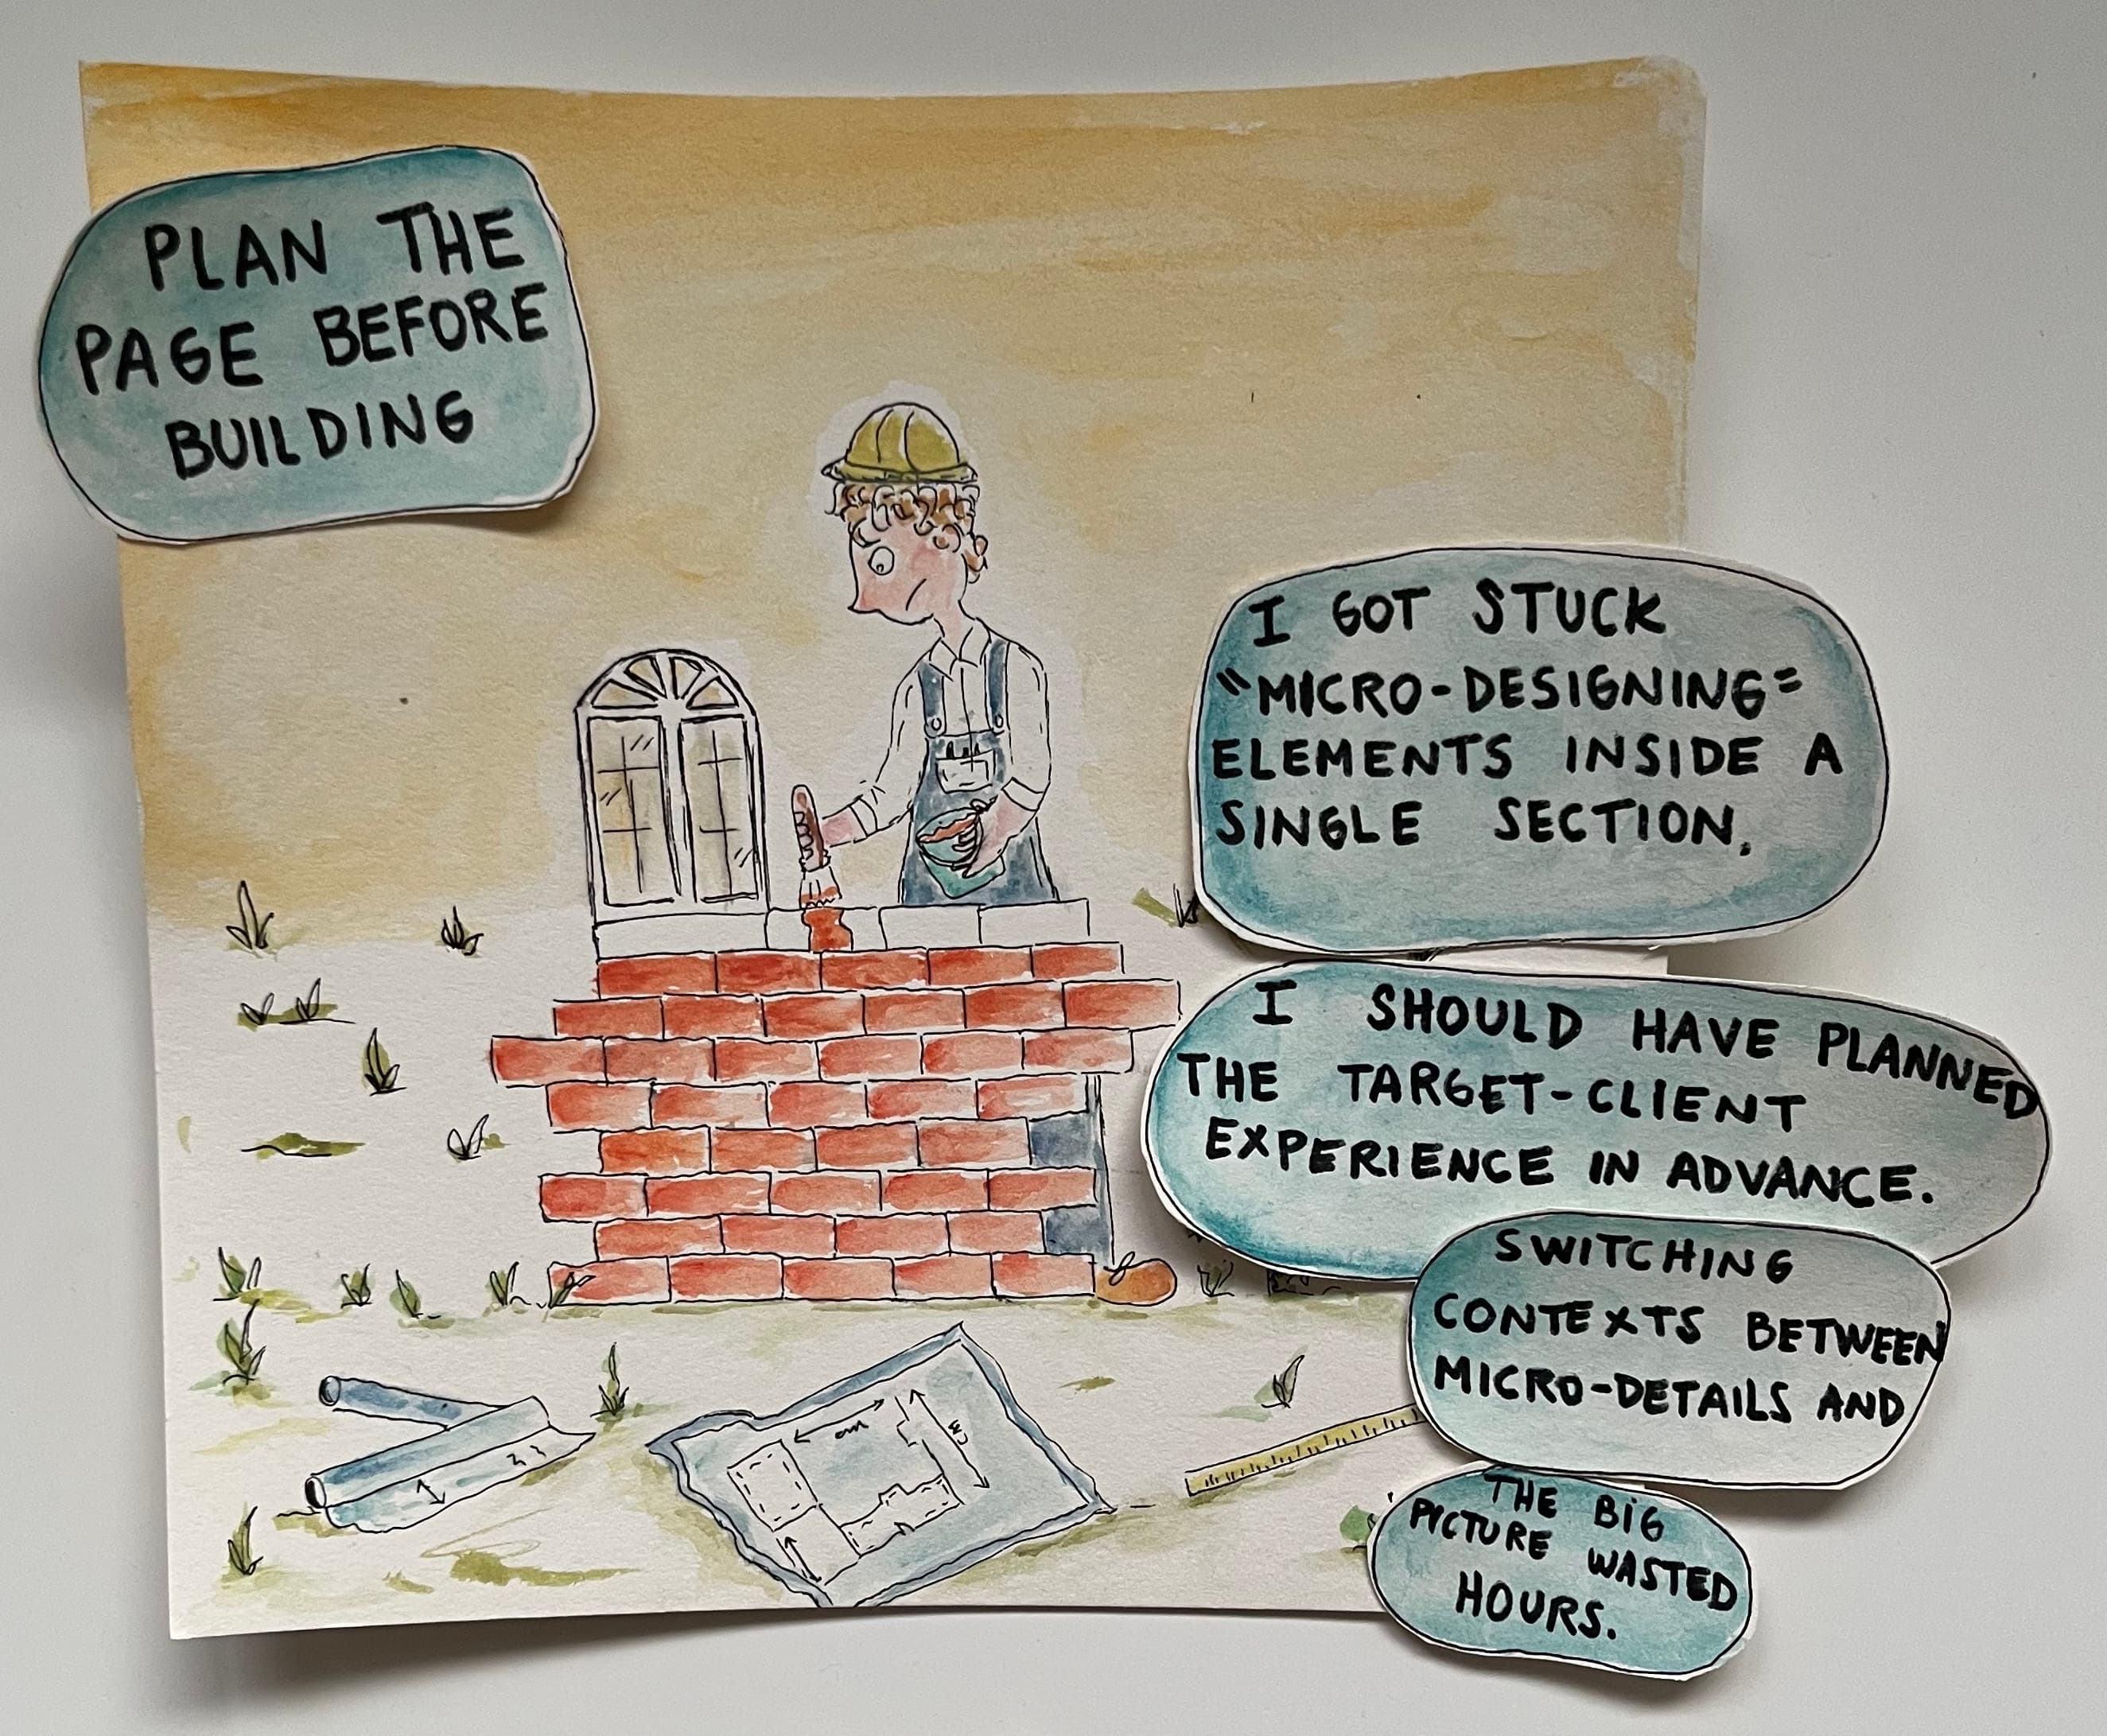 PLAN THE
PAGE BEFORE
BUILDING
I GOT STUCK
"MICRO-DESIGNING"
ELEMENTS INSIDE A
SINGLE SECTION.
I SHOULD HAVE PLANNED
THE TARGET-CLIENT
EXPERIENCE IN ADVANCE.
SWITCHING
CONTEXTS BETWEEN
MICRO-DETAILS AND
THE BIG
PICTURE WASTED
HOURS.